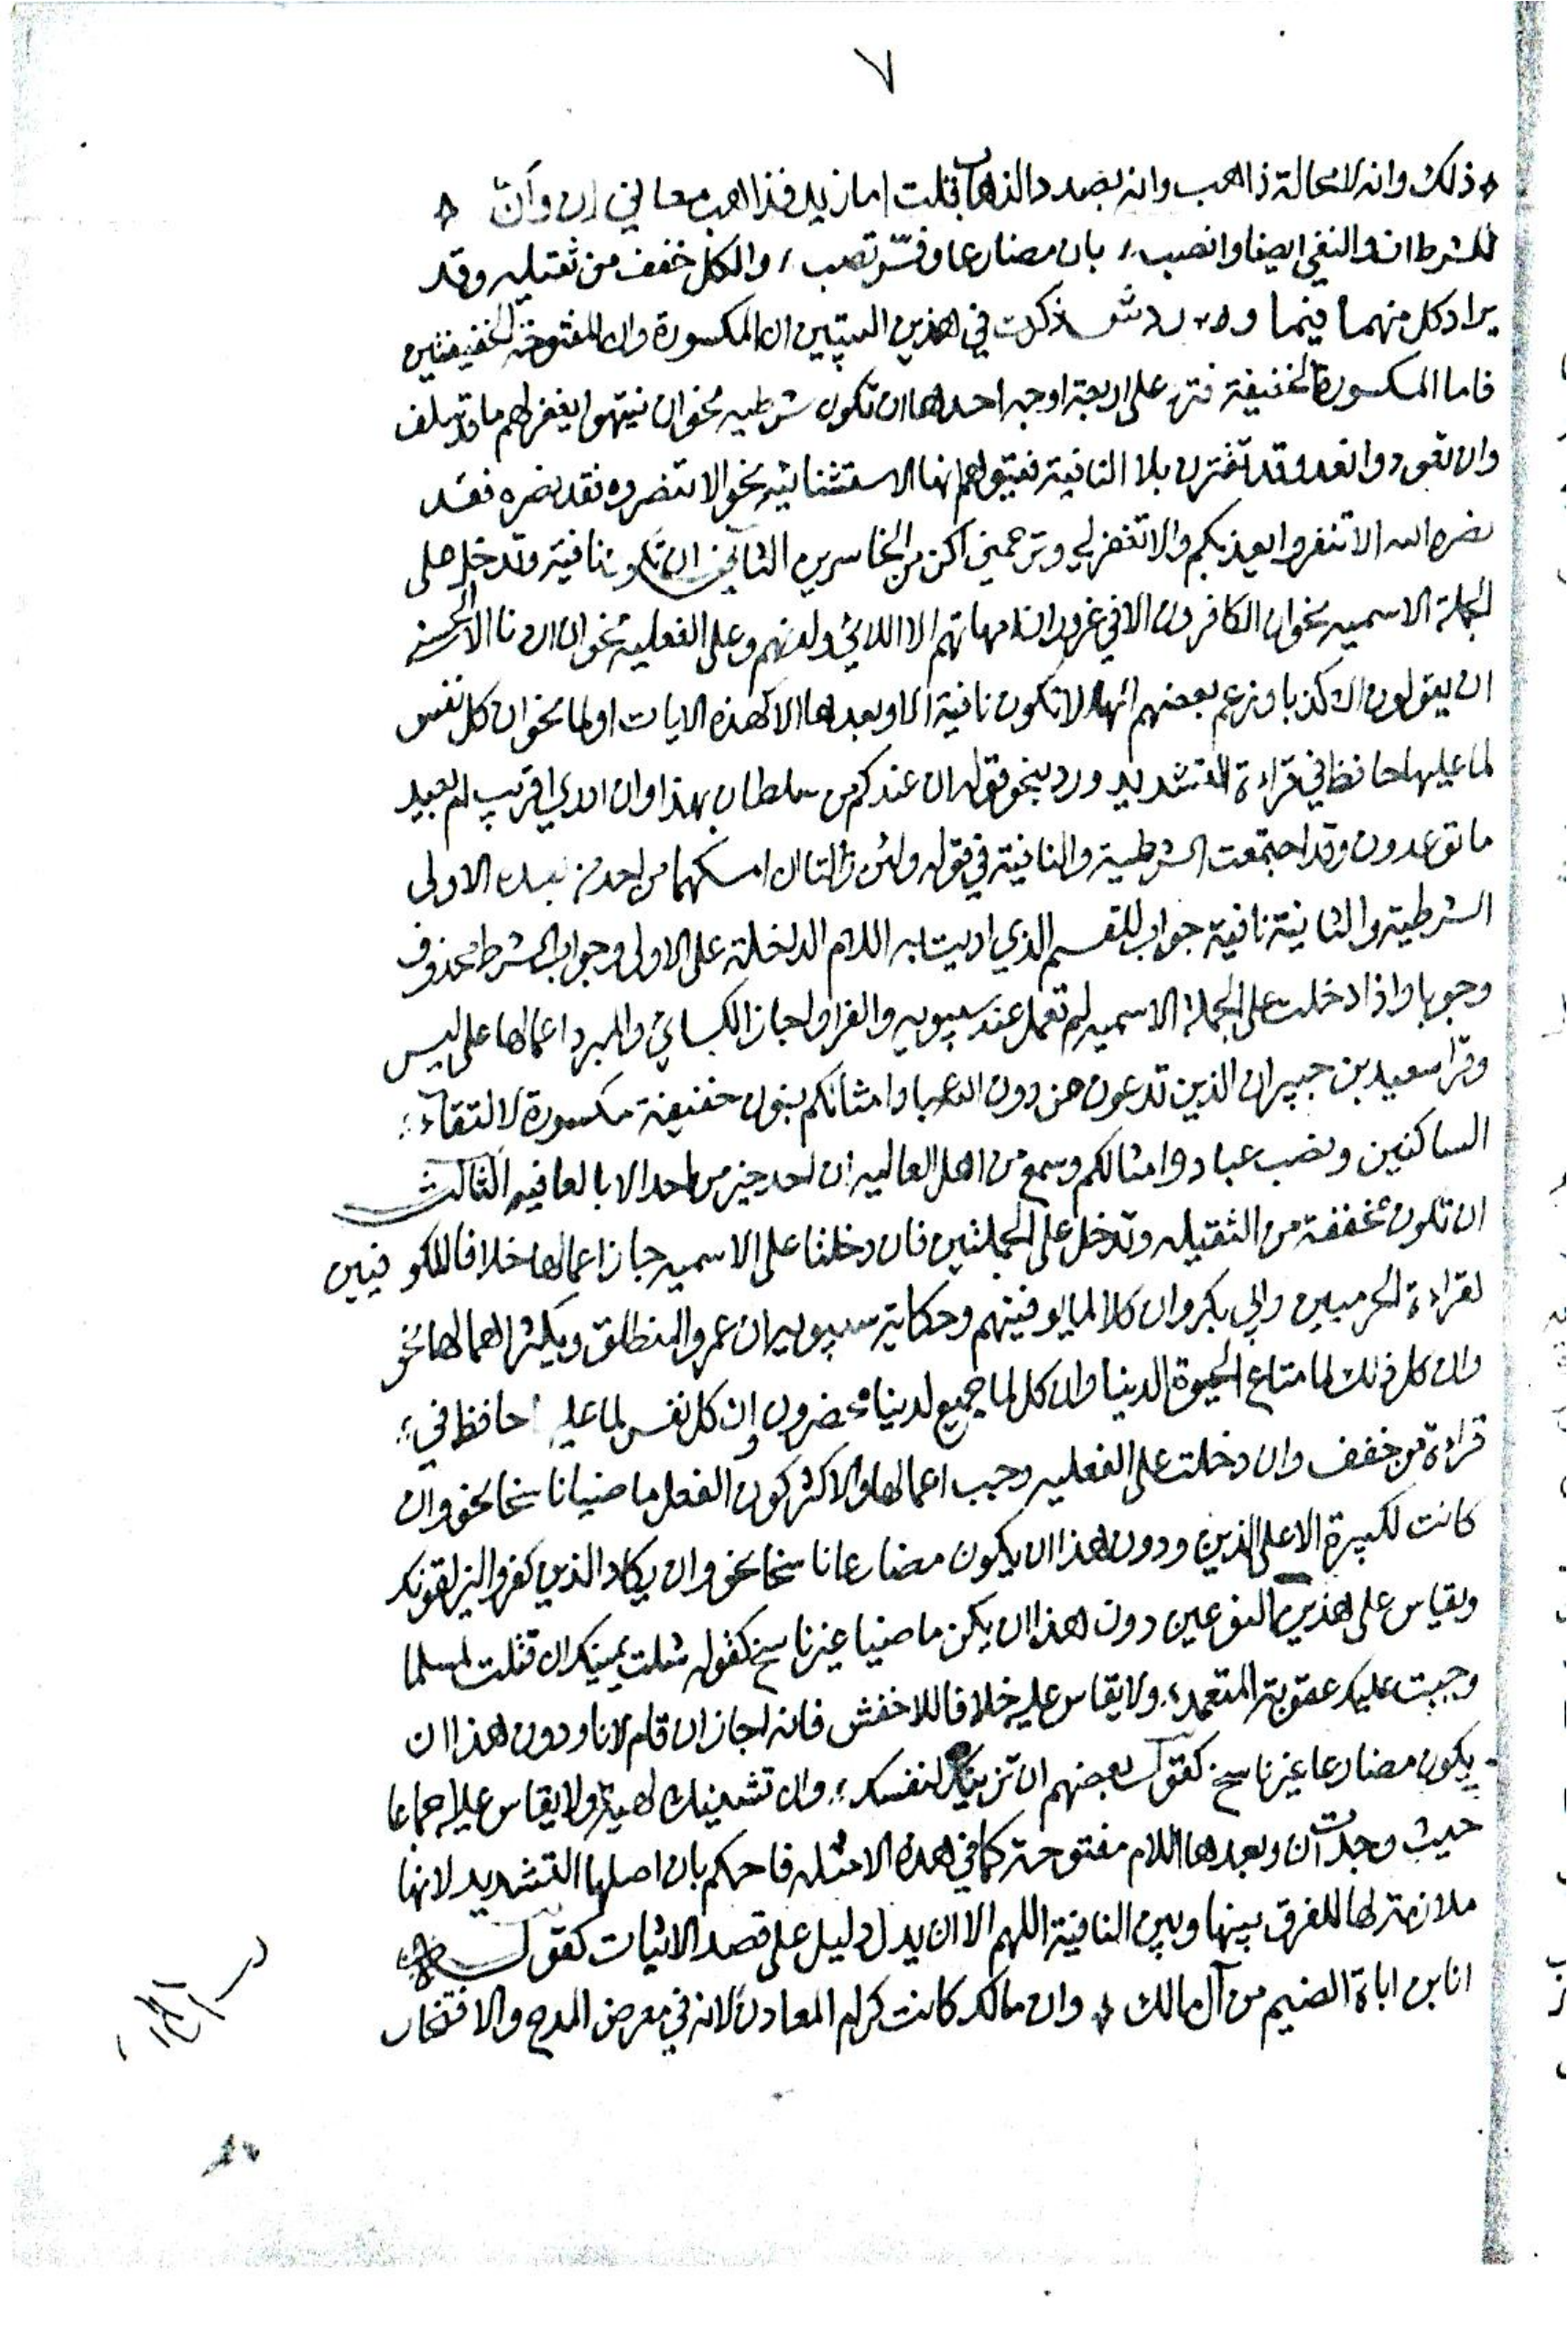 ٧
ذلك وانه لا محالة ذاهب وانه بصدد الذهاب قلت اما زيد فذاهب معاني إن وأن
للشرط ان والنفي ايضا وانصب بان مضارعا وفسّر تصب والكل خفف من ثقيله وقد
يراد كل منهما فيما ورد ش ذكرت في هذين البيتين ان المكسورة وان المفتوحة الخفيفتين
فاما المكسورة الخفيفة فترد على اربعة اوجه احدها ان تكون شرطيه نحو ان ينتهوا يغفر لهم ما قد سلف
وان تعودوا نعد وقد تقترن بلا النافية فيتوهم انها الاستثنائية نحو الا تنصروه فقد نصره فقد
نصره الله الا تنفروا يعذبكم والا تغفر لي وترحمني اكن من الخاسرين الثاني ان تكون نافية وتدخل على
الجملة الاسميه نحو ان الكافرون الا في غرور ان امهاتهم الا اللائي ولدنهم وعلى الفعلية نحو ان اردنا الا الحسنى
ان يقولون الا كذبا وزعم بعضهم انها لا تكون نافية الا وبعدها الا كهذه الايات او لما نحو ان كل نفس
لما عليها حافظ في قراءة التشديد ورد بنحو قوله ان عندكم من سلطان بهذا وان ادري اقريب ام بعيد
ما توعدون وقد اجتمعت الشرطية والنافية في قوله ولئن زالتا ان امسكهما من احد من بعده الاولى
الشرطية والثانية نافية جواب للقسم الذي اديت به اللام الداخلة على الاولى وجواب الشرط محذوف
وجوبا واذا دخلت على الجملة الاسميه لم تعمل عند سيبويه والفرا واجاز الكسائي والمبرد اعمالها على ليس
وقرا سعيد بن جبير ان الذين تدعون من دون الله عبادا امثالكم بنون خفيفة مكسورة لالتقاء
الساكنين ونصب عبادا وامثالكم وسمع من اهل العاليه ان احد خير من احد الا بالعافيه الثالث
ان تكون مخففة من الثقيله وتدخل على الجملتين فان دخلتا على الاسميه جاز اعمالها خلافا للكوفيين
لقراءة الحرميين وابي بكر وان كلا لما ليوفينهم وحكاية سيبويه ان عمروا لمنطلق ويكثر اهمالها نحو
وان كل ذلك لما متاع الحيوة الدنيا وان كل لما جميع لدينا محضرون وان كل نفس لما عليها حافظ في
قراءة من خفف وان دخلت على الفعليه وجب اعمالها والاكثر كون الفعل ماضيا ناسخا نحو وان
كانت لكبيرة الا على الذين ودون هذا ان يكون مضارعا ناسخا نحو وان يكاد الذين كفروا ليزلقونك
ويقاس على هذين النوعين دون هذا ان يكن ماضيا غير ناسخ كقوله شلت يمينك ان قتلت لمسلما
وجبت عليك عقوبة المتعمد ولا يقاس عليه خلافا للاخفش فانه اجاز ان قام لانا ودون هذا ان
يكون مضارعا غير ناسخ كقول بعضهم ان تزينك لنفسك وان تشينك لهيه ولا يقاس عليه اجماعا
حيث وجدت ان وبعدها اللام مفتوحة كما في هذه الامثله فاحكم بان اصلها التشديد لانها
ملازمة لها للفرق بينها وبين النافية اللهم الا ان يدل دليل على قصد الاثبات كقول
انا بن اباة الضيم من آل مالك وان مالك كانت كرام المعادن لانه في معرض المدح والافتخار